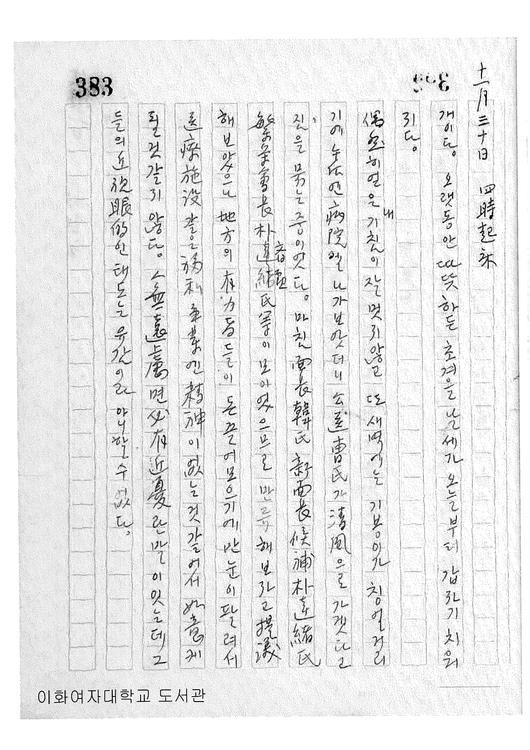 383
十一月 三十日 四時起床
개이다. 오랫동안 따뜻하든 초겨을 날세가 오늘부터 갑자기 치워
지다.
偶然히 연은 내 기침이 잘 멋지 않고 또 새벽에는 기봉이가 칭얼거리
기에 病院엘 나가보앗더니 公医 曺氏가 淸風으로 가겟다고
짐을 묶는 중이엇다. 마침 面長 韓氏 副面長候補 朴達緖氏
繁榮會長 朴達緖氏 等이 모아엿으므로 만류해보라고 提議
해 보앗으나 地方의 有力者들이 돈 끌어모으기에만 눈이 팔려서
医療施設 같은 福利事業엔 精神이 없는 것 같어서 如意케
될 것 같지 않다. 人無遠慮면 必有近憂란 말이 잇는데 그
들의 近視眼的인 태도는 유감이라 아니할 수 없다.
이화여자대학교 도서관